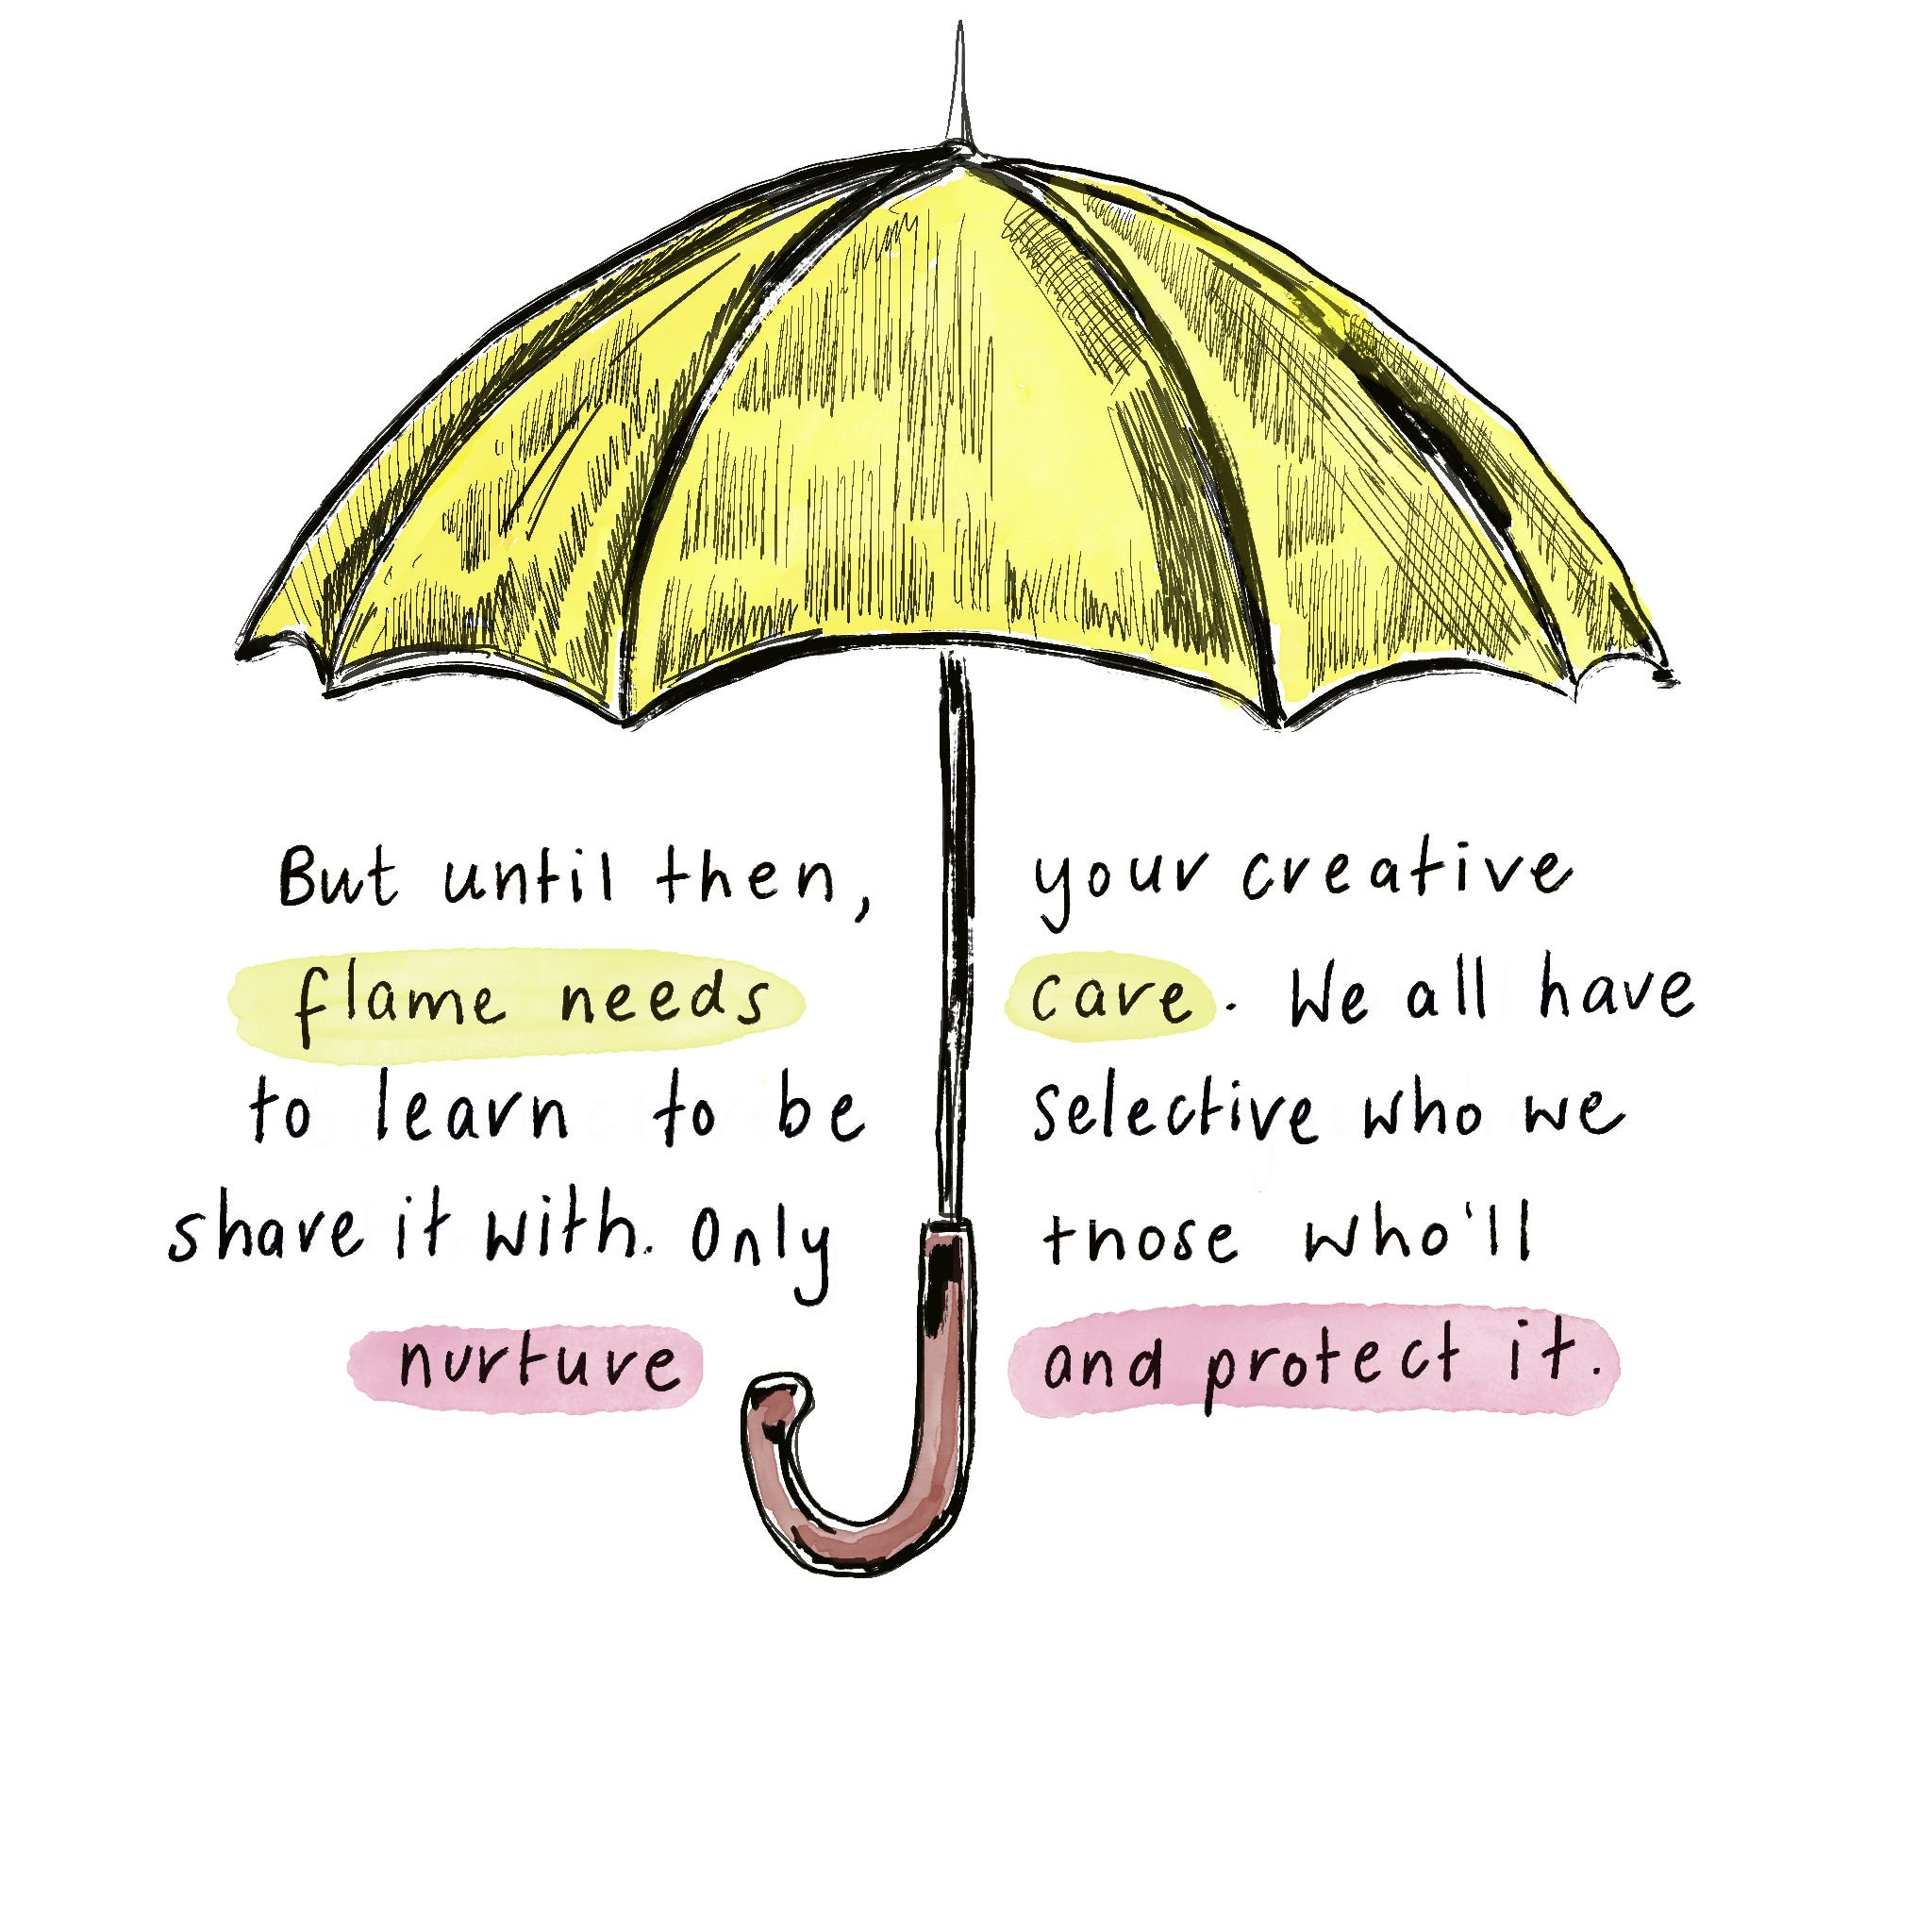 But until then, your creative
flame needs care. We all have
to learn to be selective who we
share it with. Only those who'll
nurture and protect it.